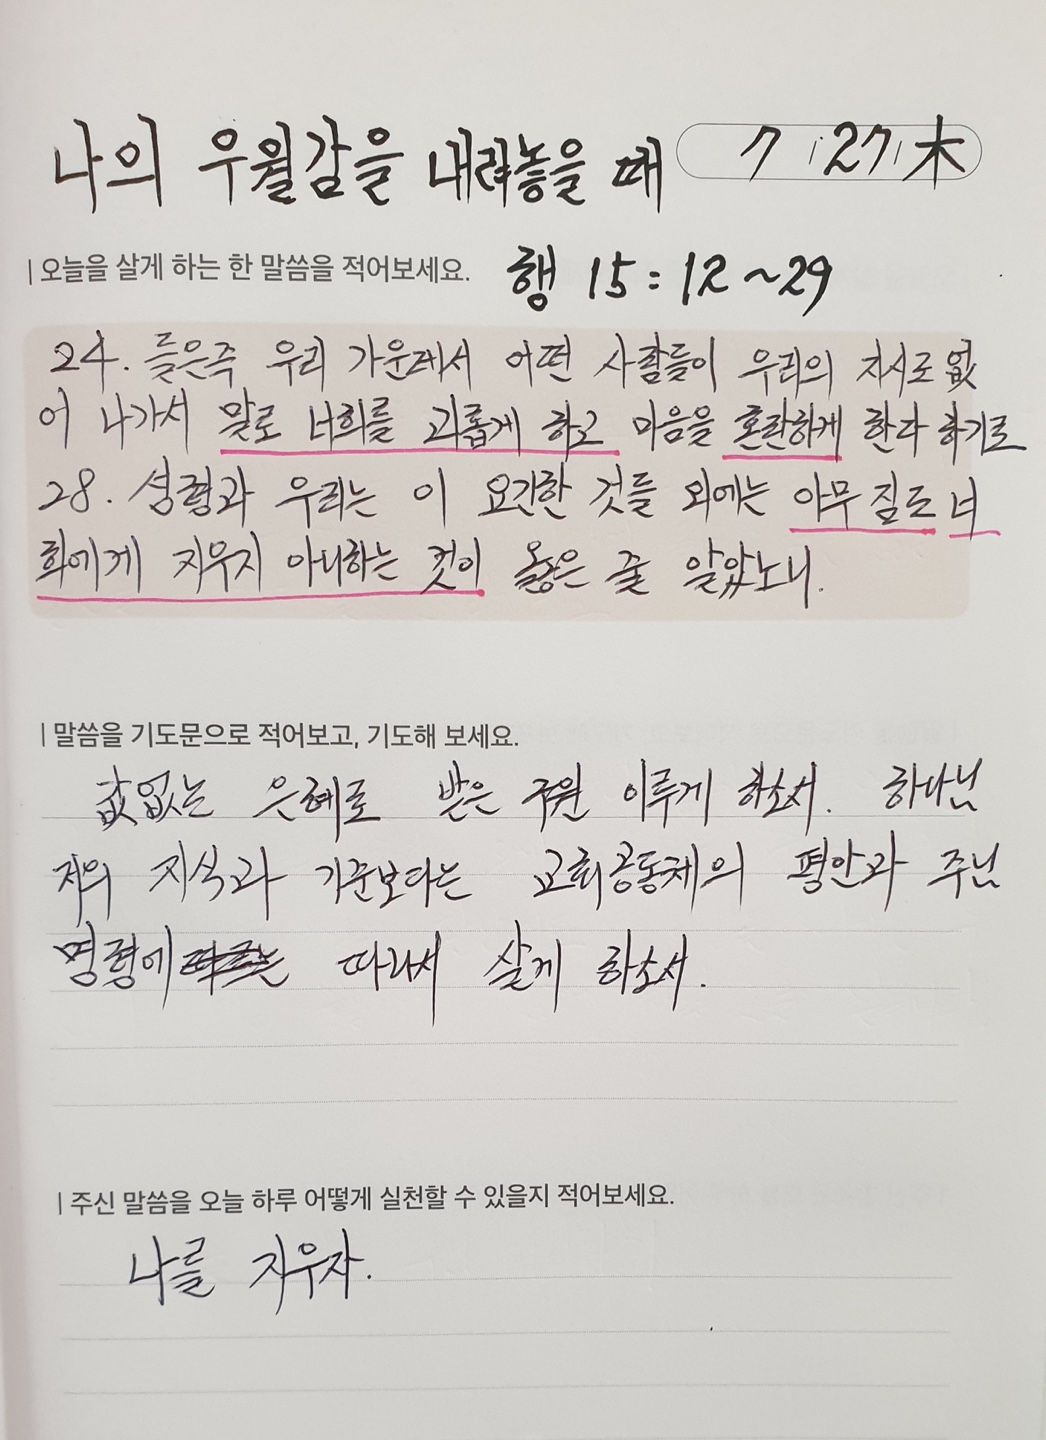 나의 우월감을 내려놓을 때 7 27 木
오늘을 살게 하는 한 말씀을 적어보세요. 행 15 : 12 ~29
24. 들은즉 우리 가운데서 어떤 사람들이 우리의 지시도 없
어 나가서 말로 너희를 괴롭게 하고 마음을 혼란하게 한다 하기로
28. 성령과 우리는 이 요긴한 것들 외에는 아무 짐도 너
희에게 지우지 아니하는 것이 옳은 줄 알았노니.
말씀을 기도문으로 적어보고, 기도해 보세요.
값없는 은혜로 받은 구원 이루게 하소서. 하나님
저의 지식과 기준보다는 교회공동체의 평안과 주님
명령에 따라서 살게 하소서.
주신 말씀을 오늘 하루 어떻게 실천할 수 있을지 적어보세요.
나를 지우자.